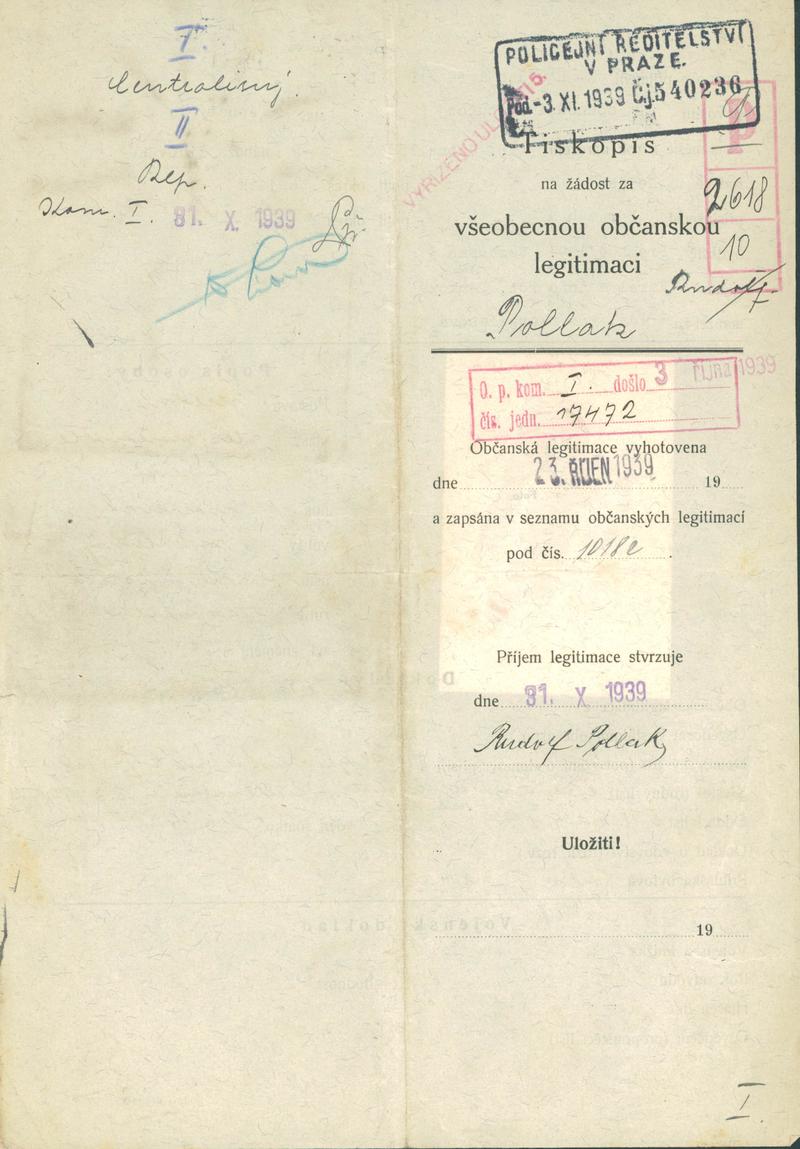 I.
II
Kom. I. 31. X. 1939
POLICEJNÍ ŘEDITELSTVÍ
V PRAZE.
Pod. -3. XI. 1939 Čj. 540236
VYŘÍZENO
P
Tiskopis
na žádost za
2618
všeobecnou občanskou
10
legitimaci
Rudolf
Pollak
O. p. kom. I. došlo 3 ŘÍJNA 1939
čís. jedn. 17472
Občanská legitimace vyhotovena
dne 23. ŘÍJEN 1939 19
a zapsána v seznamu občanských legitimací
pod čís.
Příjem legitimace stvrzuje
dne 31. X 1939
Rudolf Pollak
Uložiti!
19
I.